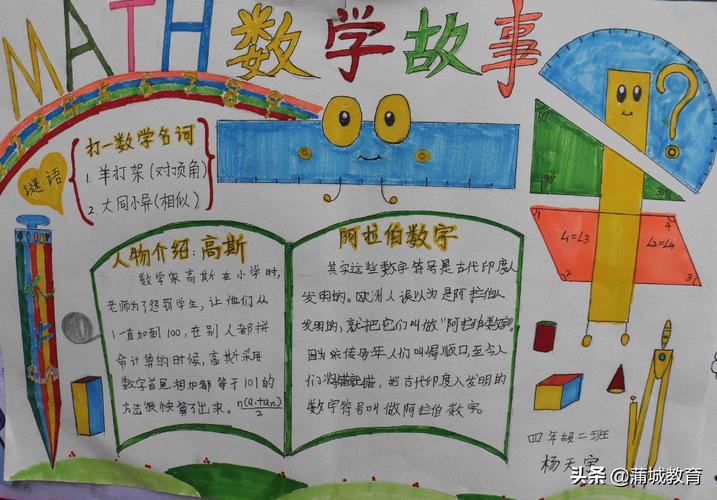 MATH数学故事
谜语
打一数学名词
1. 羊打架(对顶角)
2. 大同小异(相似)
人物介绍:高斯
数学家高斯在小学时,
老师为了惩罚学生,让他们从
1一直加到100,在别人都拼
命计算的时候,高斯采用
数字首尾相加都等于101的
方法很快算了出来。n(a₁+aₙ)/2
阿拉伯数字
其实这些数字符号是古代印度人
发明的。欧洲人误以为是阿拉伯人
发明的,就把它们叫做"阿拉伯数字"。
因为流传多年人们叫得顺口,至今人
们将错就错,把古代印度人发明的
数字符号叫做阿拉伯数字。
60°
90°
30°
?
1
4
∠1=∠3
∠2=∠4
2
3
四年级二班
头条 @蒲城教育